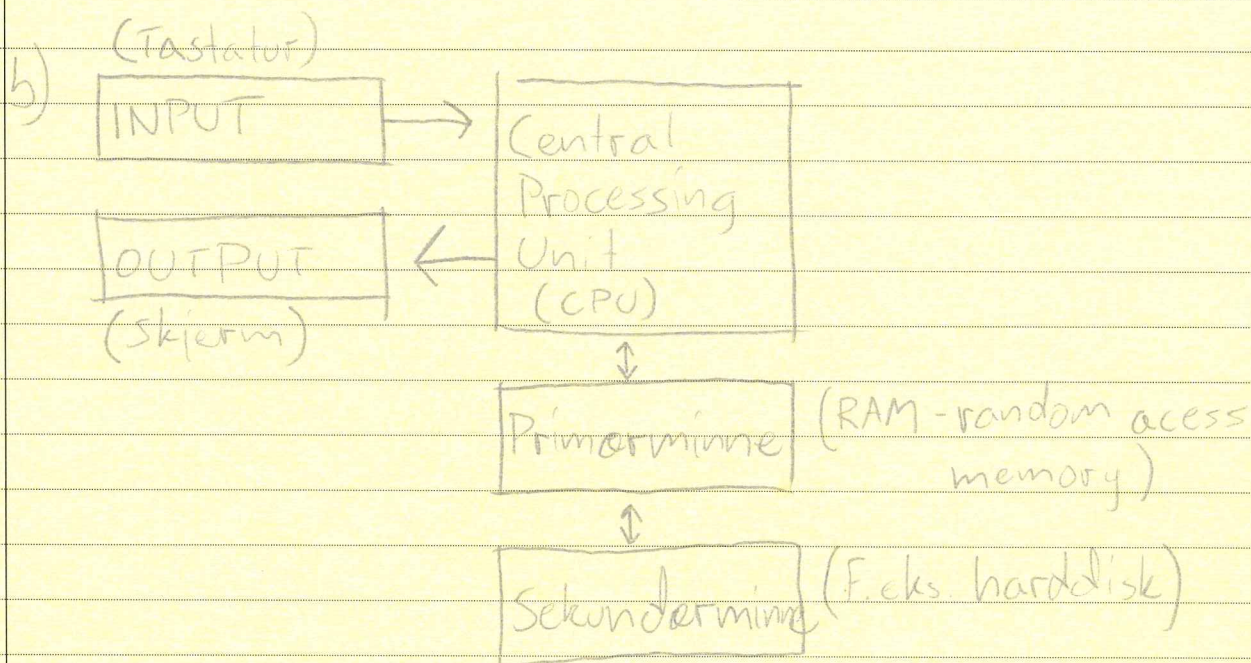 b)
(Tastatur)
INPUT
OUTPUT
(Skjerm)
Central
Processing
Unit
(CPU)
Primærminne
(RAM-random acess
memory)
Sekundærminne
(F.eks. harddisk)